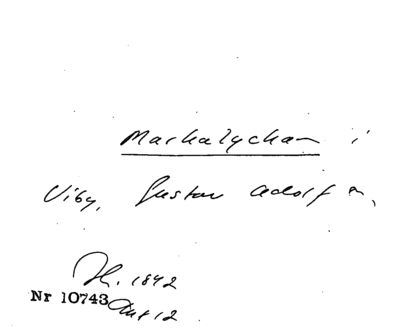 Markalyckan i
Viby, Gustav Adolf sn,
1842
Nr 10743